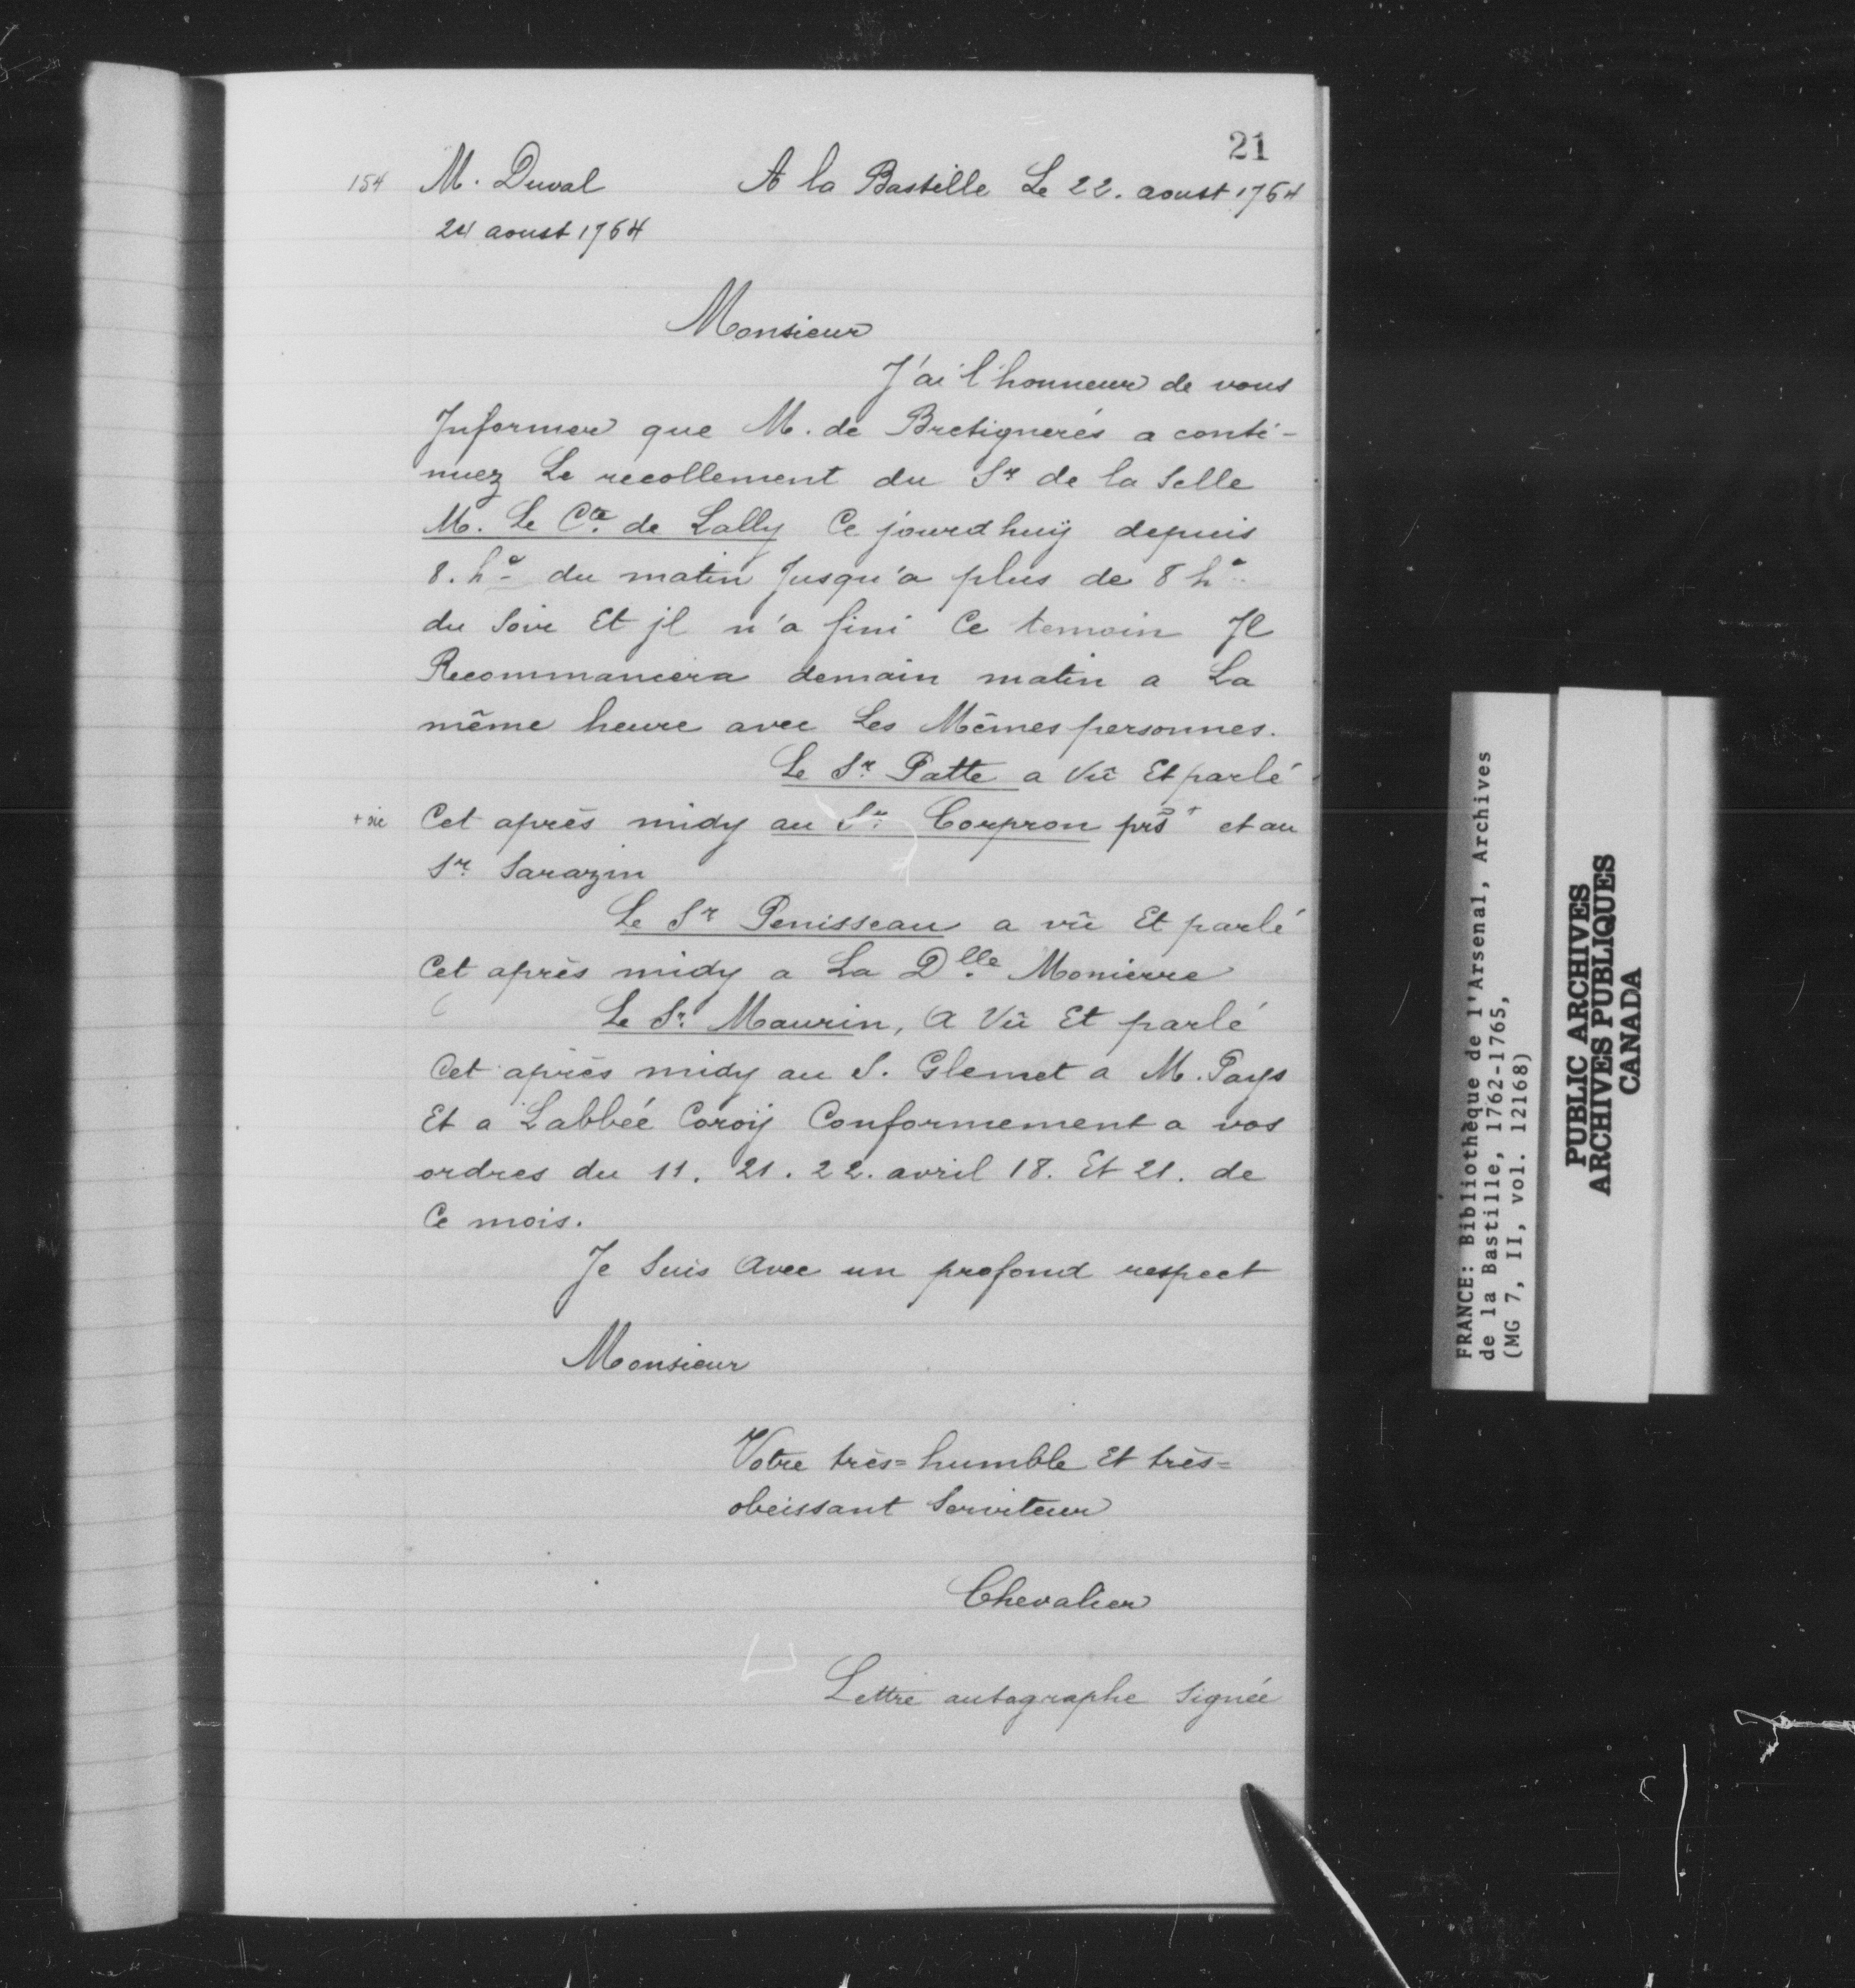 21
154 M. Duval A la Bastille Le 22. aoust 1764
24 aoust 1764
Monsieur
J'ai l'honneur de vous
Informer que M. de Bretignerés a conti-
nuez Le recollement du Sr de la Selle
M. Le Cte. de Lally Ce jourdhuÿ depuis
8. he du matin Jusqu'a plus de 8 he
du Soir Et jl n'a fini Ce temoin Jl
Recommancera demain matin a La
même heure avec Les Mêmes personnes.
Le Sr. Patte a Vû Et parlé
+ sic Cet après midy au Sr. Corpron prs + et au
Sr. Sarazin
Le Sr Penisseau a vû Et parlé
Cet après midy a La Dlle. Monierre
Le Sr. Maurin, A Vû Et parlé
Cet après midy au S. Glemet a M. Pays
Et a Labbée Coroÿ Conformement a vos
ordres du 11. 21. 22. avril 18. Et 21. de
Ce mois.
Je Suis Avec un profond respect
Monsieur
Votre très=humble Et très=
obeissant Serviteur
Chevalier
Lettre autographe Signée
FRANCE: Bibliothèque de l'Arsenal, Archives
de la Bastille, 1762-1765,
(MG 7, II, vol. 12168)
PUBLIC ARCHIVES
ARCHIVES PUBLIQUES
CANADA